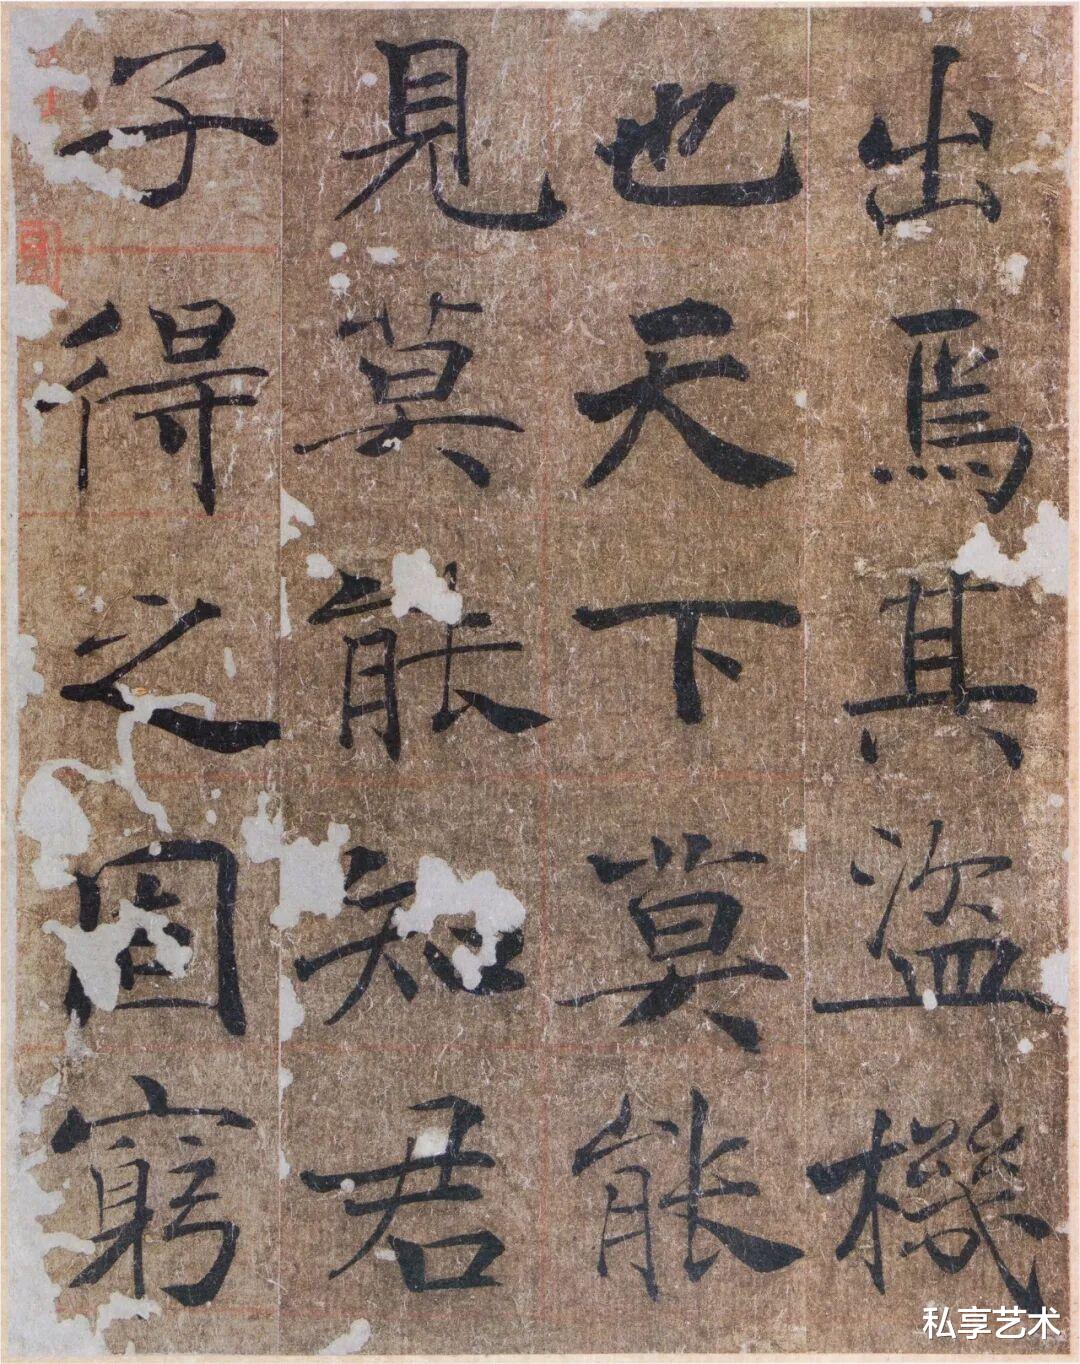 出焉其盜機
也天下莫能
見莫能知君
子得之固窮
私享艺术